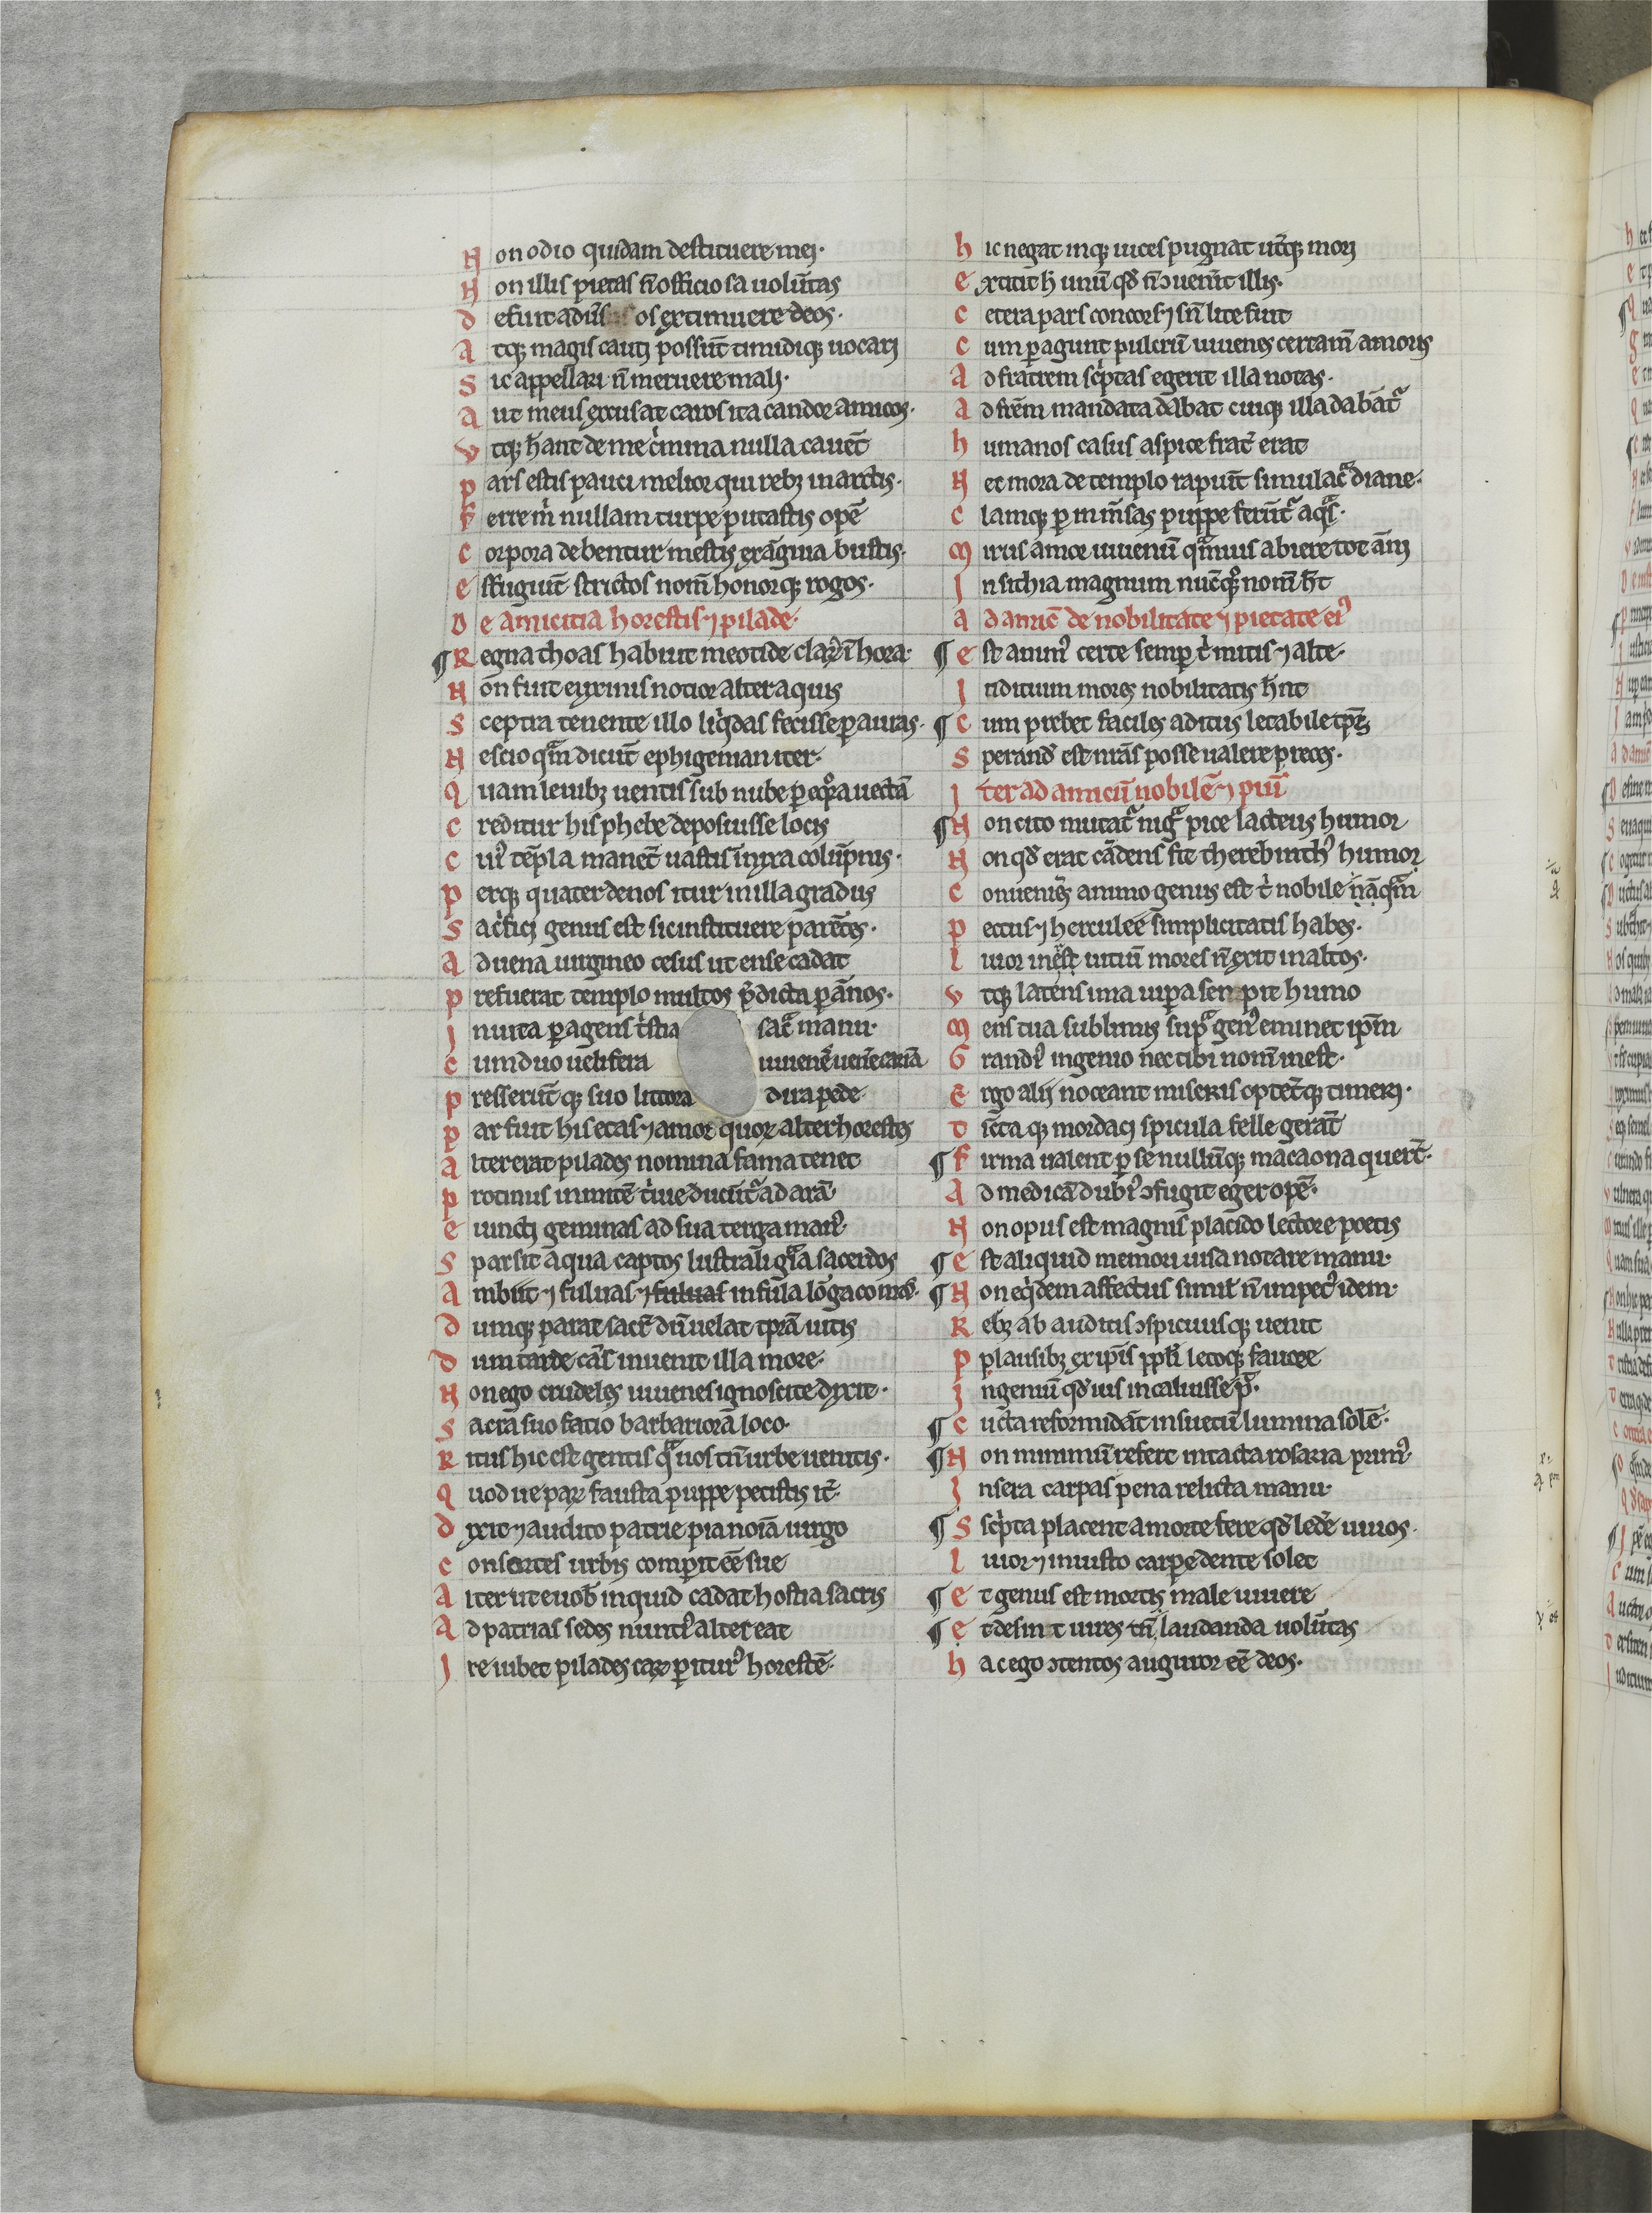 Non odio quidam destituere mei·
Non illis pietas ñ officiosa uolūtas
defuit aduersos extimuere deos·
Atqꝫ magis cauti possūt timidiqꝫ uocari
Sic appellari ñ meruere mali·
Aut meus excusat caros ita candor amicos·
Vtqꝫ hãnt de me c̍mina nulla cauēt
pars estis pauci melior qui rebꝫ in arctis·
Ferre m̍ nullam turpe putastis opē
Corpora debentur mestis exāguia bustis·
Effugiūt structos nom̄ honorqꝫ rogos·
De amicitia horestis ⁊ pilade·
¶ Regna thoas habuit meotide clarꝰ ī hora·
Non fuit euxinis notior alter aquis
Sceptra tenente illo liq̍das fecisse ꝑ auras·
Nescio qᵃm dicūt ephigenian iter·
Quam leuibꝫ uentis sub nube ꝑ eqᵒra uectā
Creditur his phebe deposuisse locis
Cuiꝰ tēpla manēt uastis innixa colūpnis·
perqꝫ quater denos itur in illa gradus
Sac̍fici genus est sic instituere parētes·
Aduena uirgineo cesus ut ense cadat
prefuerat templo multos p̄dicta ꝑ ānos·
Inuita ꝑagens t̍stia sacᵃ manu·
Cum duo uelifera iuuenes uenere carina
presserūtqꝫ suo littora dura pede·
par fuit his etas ⁊ amor quoꝝ alter horestes
alter erat pilades nomina fama tenet
protinus inmitē t̍uie ducūtᵃ ad arā·
euincti geminas ad sua terga manꝰ·
Sparsit aqua captos lustrali gᵃia sacerdos
Ambiit ⁊ fuluas ⁊ fuluas infula lōga comas·
dumqꝫ parat sac̄ dū uelat tꝑā uitis
dum tarde cās inuenit illa more·
Non ego crudeles iuuenes ignoscite dixit·
Sacra suo facio barbariora loco·
Ritus hic est gentis qᵃ uos tn̄ urbe uenitis·
Quod ue paꝝ fausta puppe petistis it̄·
dixit ⁊ audito patrie pia noīa uirgo
Consortes urbis comꝑit eē sue
Alter ut e uob̄ inquid cadat hostia sacris
Ad patrias sedes nuntiꝰ alter eat
Ire iubet pilades caꝝ ꝑiturꝰ horestē·
hic negat inqꝫ uices pugnat ut̄qꝫ mori
extitit h̄ unū qd̄ n̄ ↄuenerit illis·
Cetera pars concors ⁊ sn̄ lite fuit
Cum ꝑagunt pulcrū iuuenes certam̄ amoris
Ad fratrem sc̍ptas egerit illa notas·
ad frēm mandata dabat cuiqꝫ illa dabātᵃ
humanos casus aspice frat̄ erat
Nec mora de templo rapuīt simulacᵃ diane·
Clamqꝫ ꝑ inm̄sas puppe ferūtᵃ aqᵃs·
Mirus amor iuuenū qᵃmuis abiere tot ānni
In sithia magnum nūcqᵒꝫ nom̄ h̄t
ad amicū de nobilitate ⁊ pietate eiꝰ
¶ Est animꝰ certe semꝑ t̍ mitis ⁊ alte·
Inditium mores nobilitatis hn̄t
¶ Cum prebet faciles aditus letabile tꝑs
Sperand̄ est nr̄as posse ualere preces·
Iter ad amicū nobilē ⁊ piū
¶ Non cito mutatᵃ nigᵃ pice lacteus humor
Non qd̄ erat cādens fit therebinthꝰ humor
Conueniēs animo genus est t̍ nobile nāqᵃm
pectus ⁊ herculee simplicitatis habes·
liuor iners uitiū mores n̄ exit in altos·
Vtqꝫ latens ima uiꝑa serpit humo
Mens tua sublimis supᵃ genꝰ eminet ip̄m
Grandiꝰ ingenio nec tibi nom̄ inest·
Ergo alij noceant miseris optētqꝫ timeri·
Tīctaqꝫ mordaci spicula felle gerāt
¶ Firma ualent ꝑ se nullūqꝫ macaona querūt·
Ad medicā dubiꝰ ↄfugit eger opē·
Non opus est magnis placido lectore poetis
¶ Est aliquid memori uisa notare manu·
¶ Non eq̍dem affectus similꝭ n̄ impetꝰ idem·
Rebꝫ ab auditis ↄspicuisqꝫ uenit
pplausibꝫ ex ip̄is ppl̄i letoqꝫ fauore
Ingeniū qd̄uis incaluisse pᵗ·
¶ Cucta reformidāt insuetū lumina solē·
¶ Non nimiū refert intacta rosaria primꝰ·
In sera carpas pena relicta manu·
¶ Sscripta placent a morte fere qd̄ led̄e uiuos·
liuor ⁊ iniusto carpe dente solet
¶ Et genus est mortis male uiuere
¶ Et desint uires tn̄ laudanda uolūtas
hac ego ↄtentos auguror eē deos·